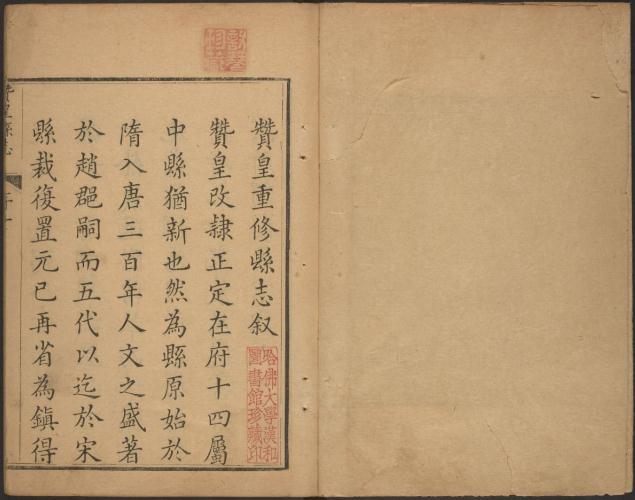 贊皇重修縣志叙
贊皇改隸正定在府十四屬
中縣猶新也然為縣原始於
隋入唐三百年人文之盛著
於趙郡嗣而五代以迄於宋
縣裁復置元已再省為鎮得
哈佛大學漢和
圖書館珍藏印